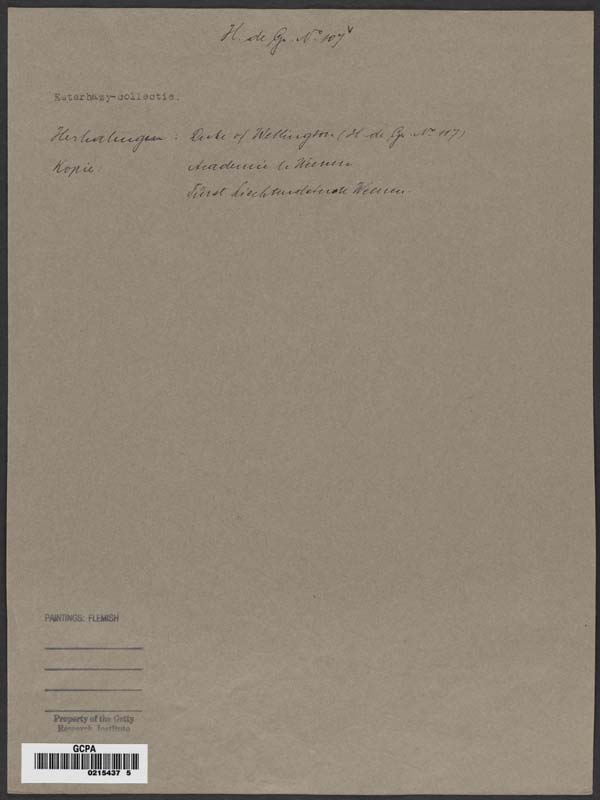 H. de Gr. Nº 107
Esterhazy-collectie.
Herhalingen: Duke of Wellington (H. de Gr. Nº 117)
Kopie: Academie te Weenen
Fürst Liechtenstein Weenen
PAINTINGS: FLEMISH
Property of the Getty
Research Institute
GCPA
0215437 5